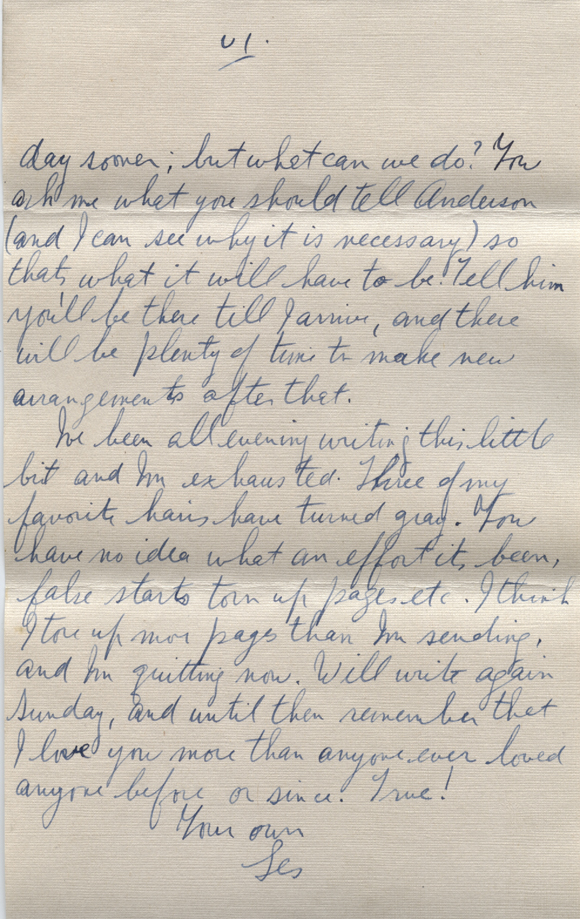 VI.
day sooner; but what can we do? You
ask me what you should tell Anderson
(and I can see why it is necessary) so
thats what it will have to be. Tell him
you'll be there till I arrive, and there
will be plenty of time to make new
arrangements after that.
I've been all evening writing this little
bit and Im exhausted. Three of my
favorite hairs have turned gray. You
have no idea what an effort its been,
false starts torn up pages etc. I think
I tore up more pages than Im sending,
and Im quitting now. Will write again
Sunday, and until then remember that
I love you more than anyone ever loved
anyone before or since. True!
Your own
Les